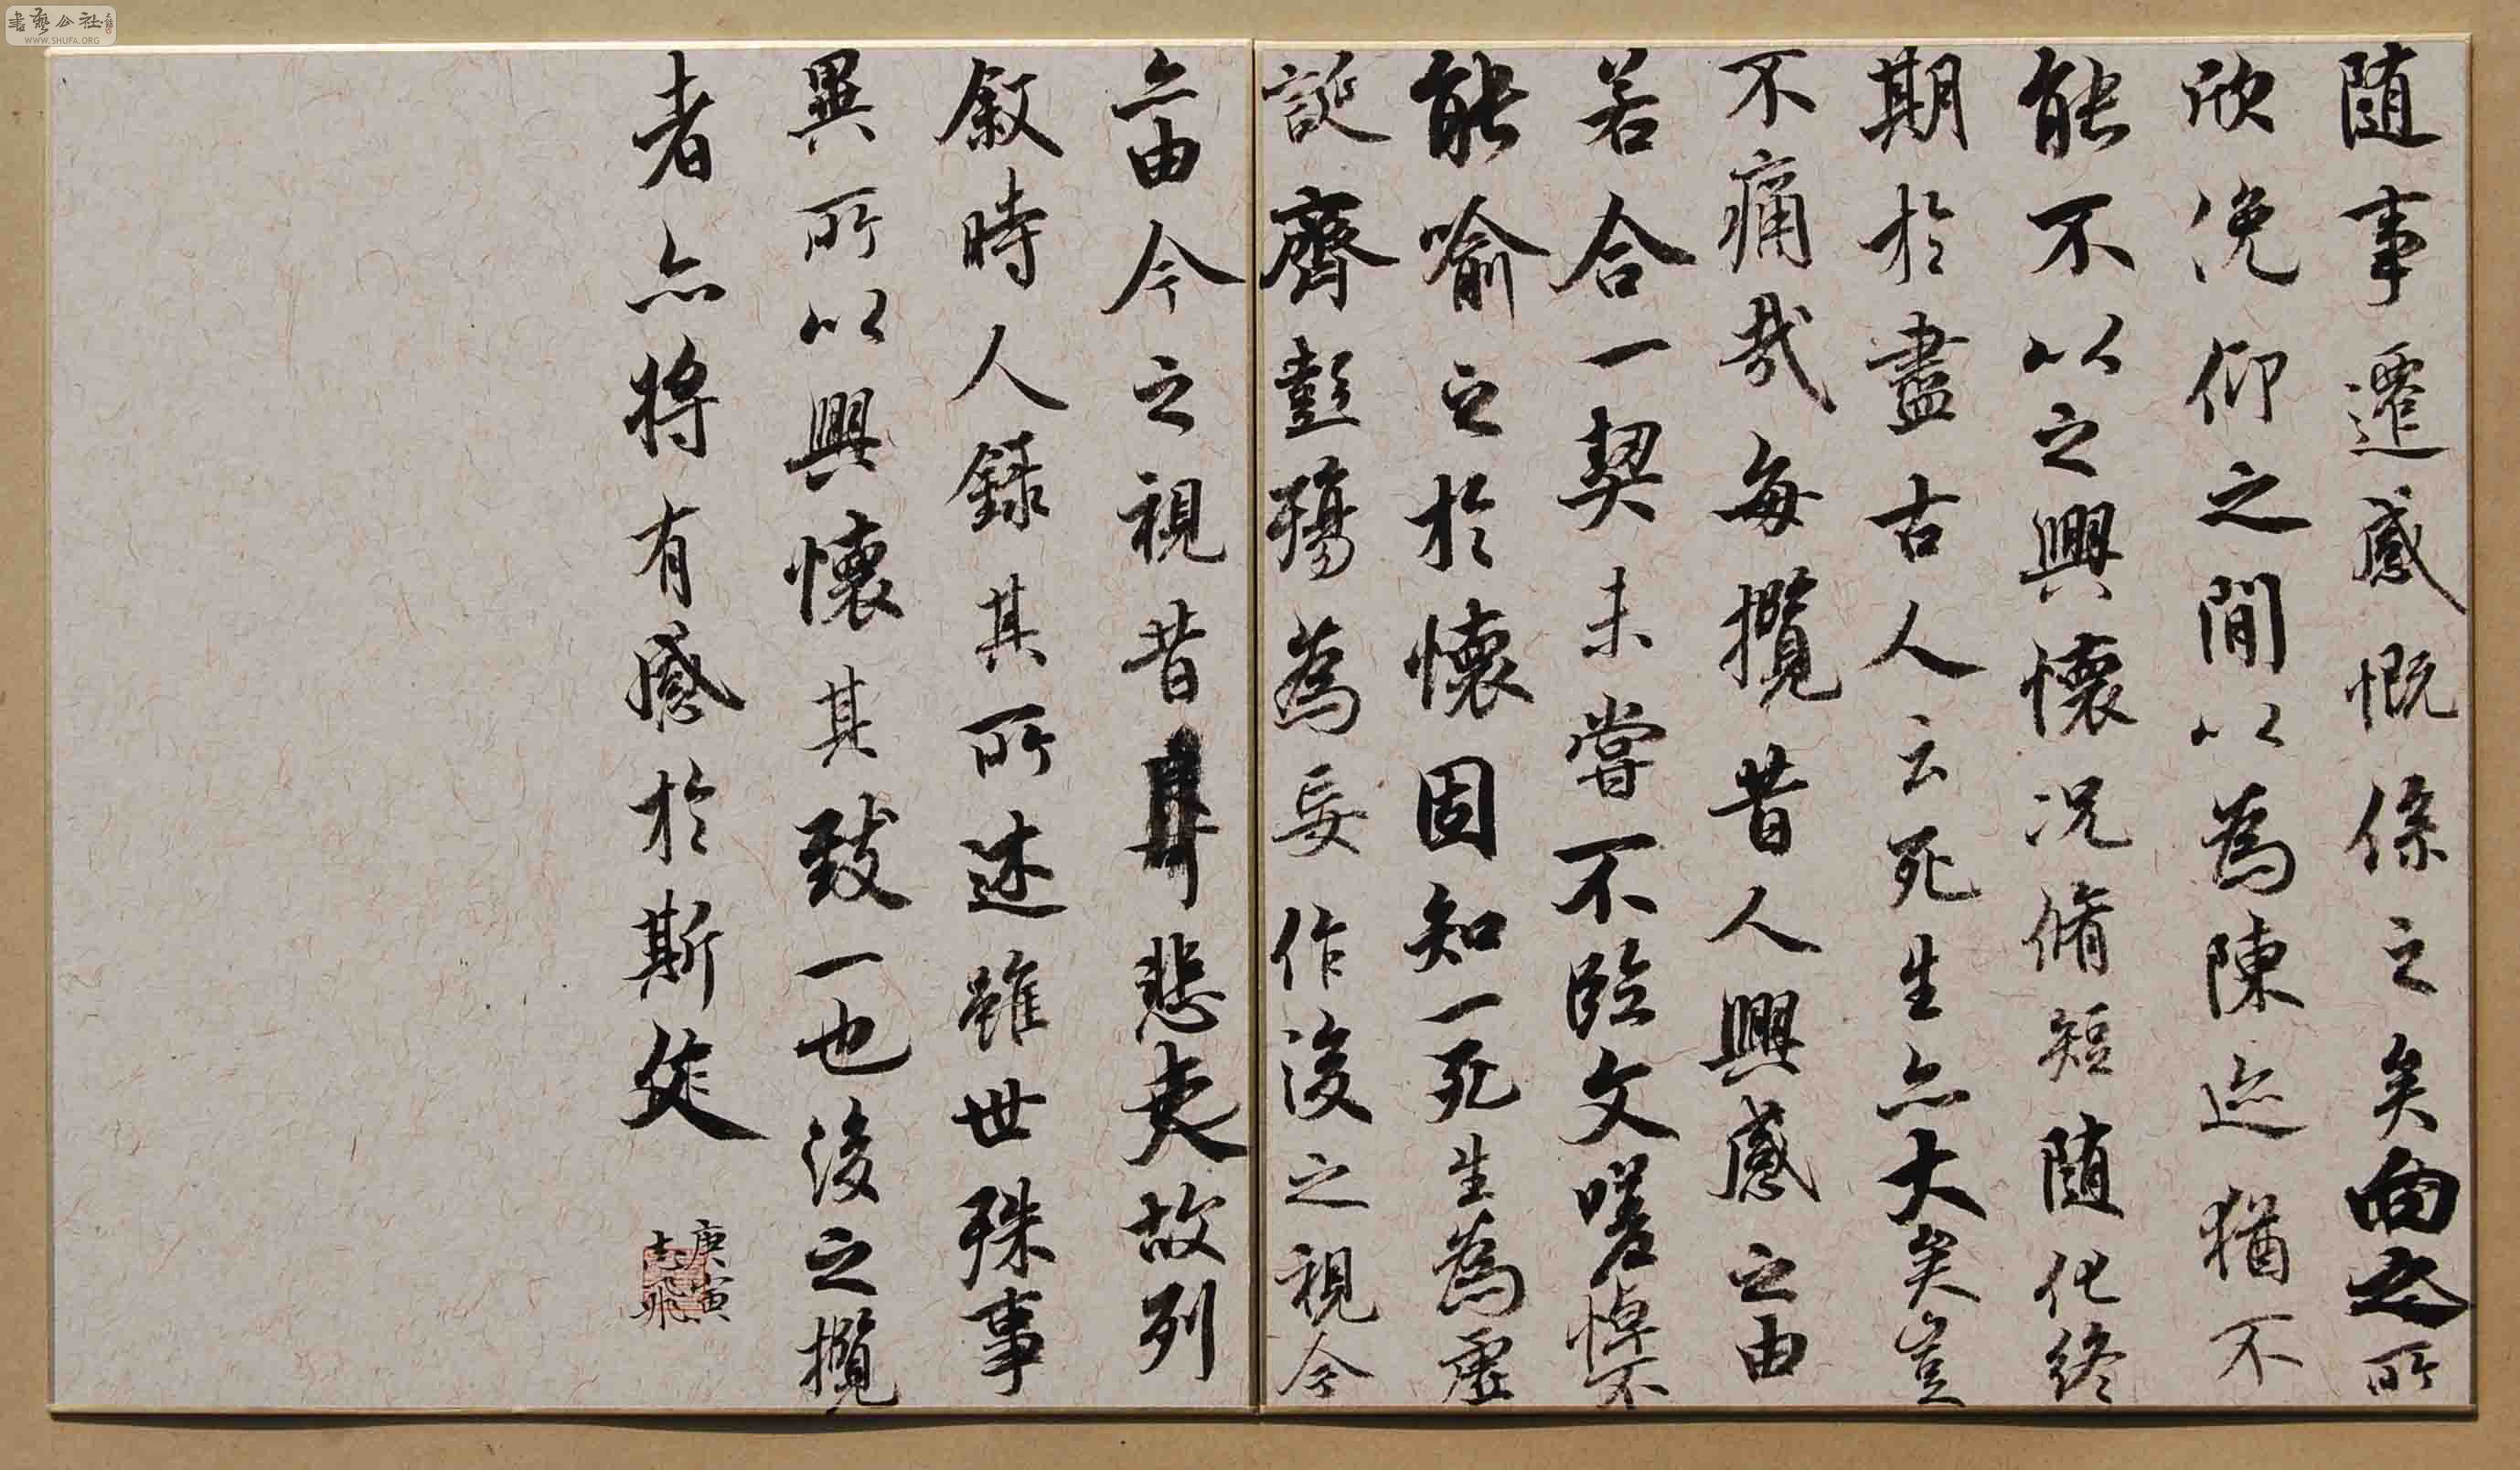 随事遷感慨係之矣向之所
欣俛仰之間以為陳迹猶不
能不以之興懷況脩短随化終
期於盡古人云死生亦大矣豈
不痛哉每攬昔人興感之由
若合一契未嘗不臨文嗟悼不
能喻之於懷固知一死生為虛
誕齊彭殤為妄作後之視今
亦由今之視昔悲夫故列
敘時人録其所述雖世殊事
異所以興懷其致一也後之攬
者亦将有感於斯文
庚寅
志飛
書藝公社
WWW.SHUFA.ORG